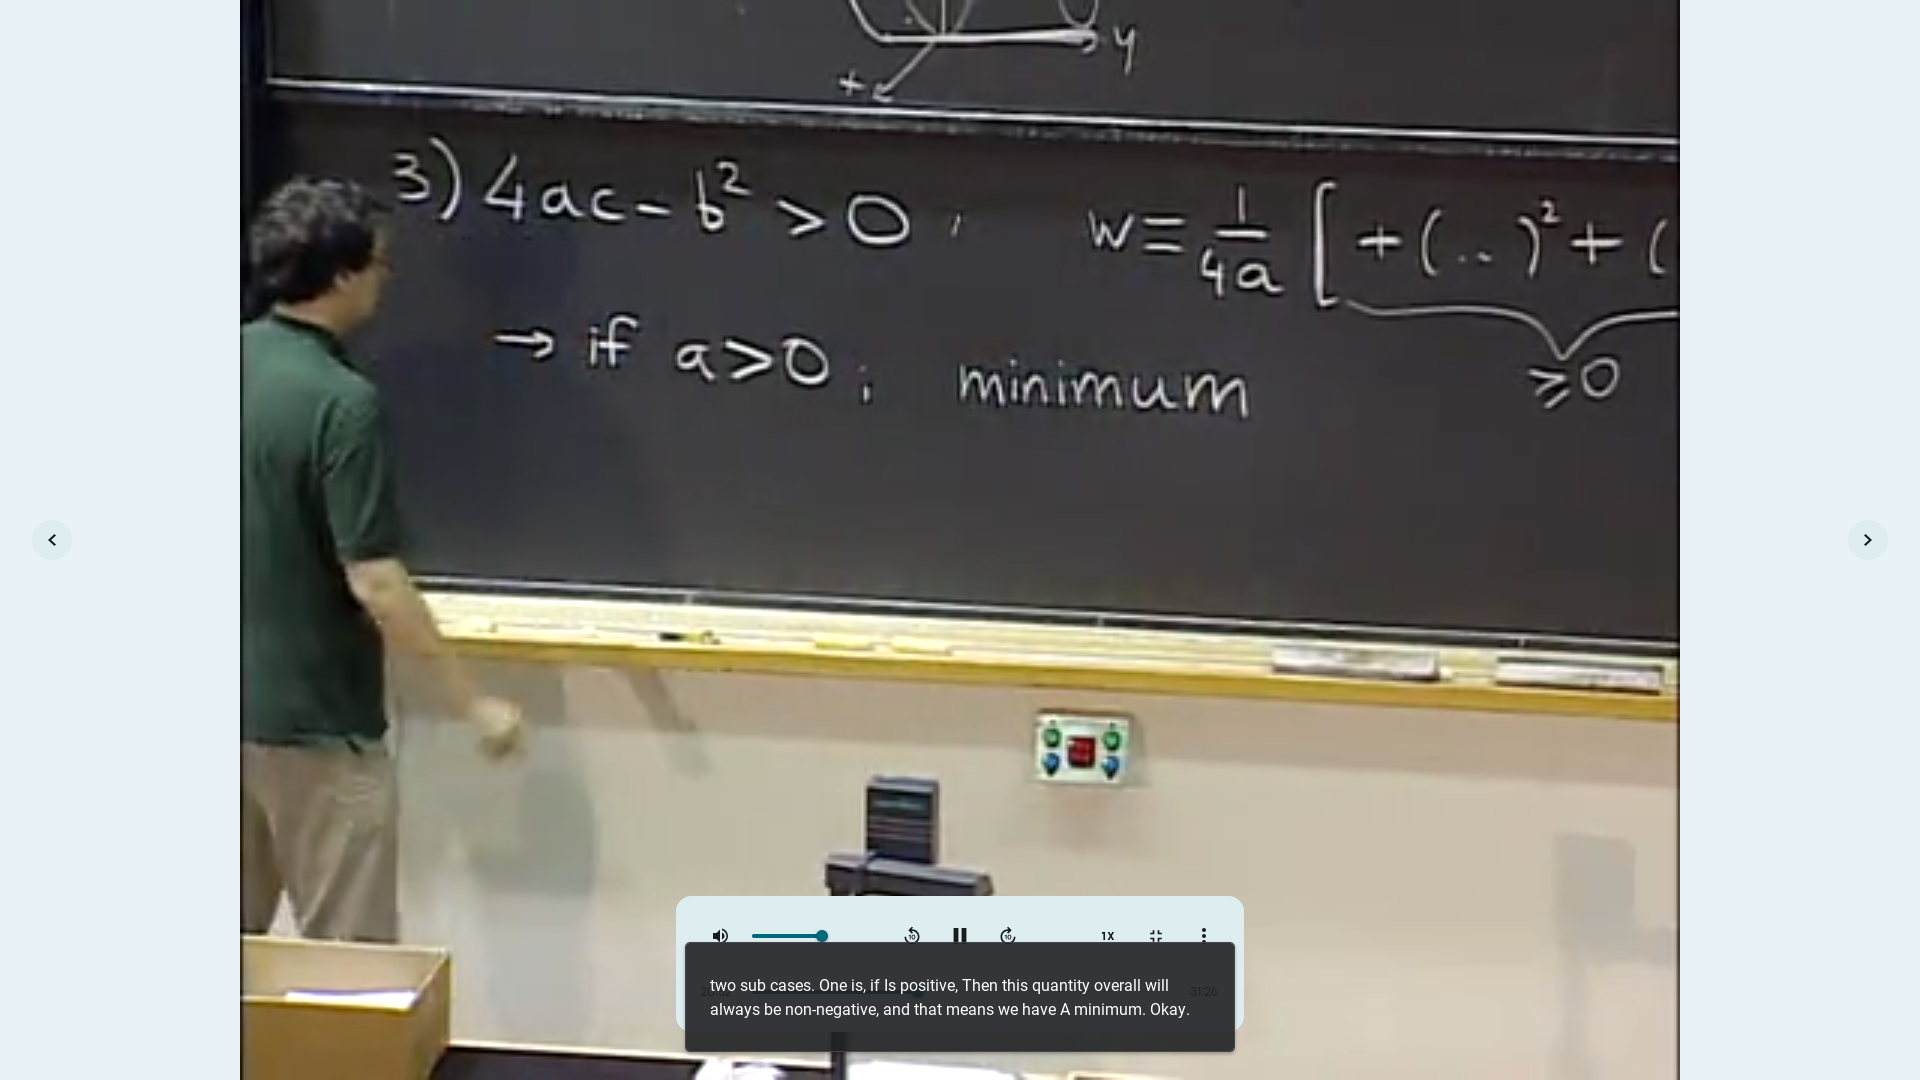 y
x
3) 4ac - b² > 0 , w = 1/4a [ + (..)² + (
≥ 0
→ if a > 0 ; minimum
1X
two sub cases. One is, if Is positive, Then this quantity overall will
always be non-negative, and that means we have A minimum. Okay.
31:26